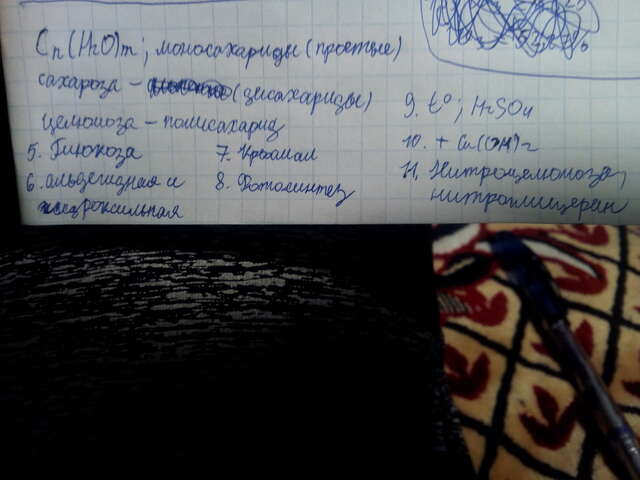 Cn(H2O)m; моносахариды (простые)
сахароза - (дисахариды)
целюлоза - полисахарид
5. Глюкоза
6. альдегидная и
гидроксильная
7. Крахмал
8. Фотосинтез
9. t°; H2SO4
10. + Cu(OH)2
11. Нитроцелюлоза,
нитроглицерин